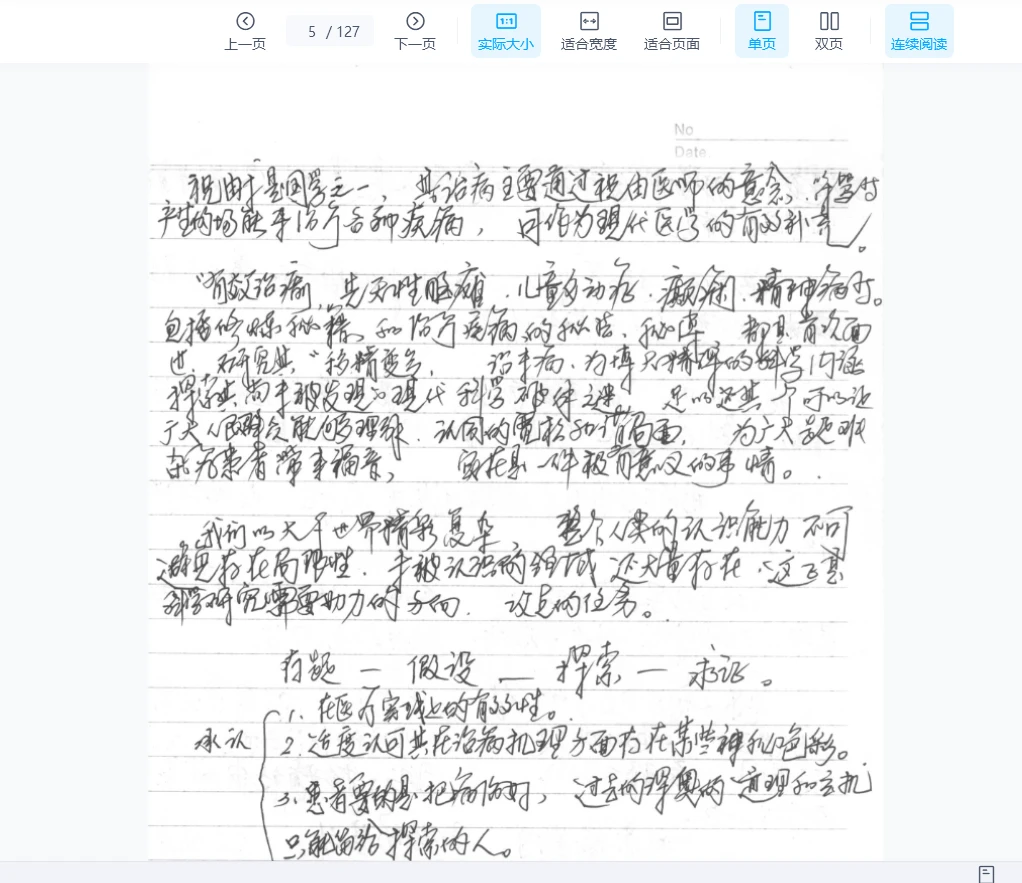 上一页
5 / 127
下一页
1:1
实际大小
适合宽度
适合页面
单页
双页
连续阅读
No
Date.
祝由十是国学之一，其治病主要通过祝由医师的意念、
产生的场能来治疗各种疾病，可作为现代医学的有效补充。
"有效治癫，先天性脑瘫、儿童多动症、癫痫、精神病等。
包括修炼秘籍、和治疗疾病的秘法、秘传 都是首次面
世、研究其"移精变气， 治未病、为博大精深的科学内涵
探索其尚未被发现的现代科学
广大人民群众能够理解、认同的 局面， 为广大疑难
杂病患者带来福音， 实在是一件极有意义的事情。
我们的大千世界精彩复杂， 整个人类的认识能力不可
避免存在局限性、未被认识的领域还大量存在、这正是
科学研究需要助力的方向、攻克的任务。
存疑 — 假设 — 探索 — 求证。
承认
1、在医疗实践上的有效性。
2、适度认可其在治病机理方面存在某些神秘色彩。
3、患者要的是把病治好，过去的深奥的道理和玄机
只能留给探索的人。